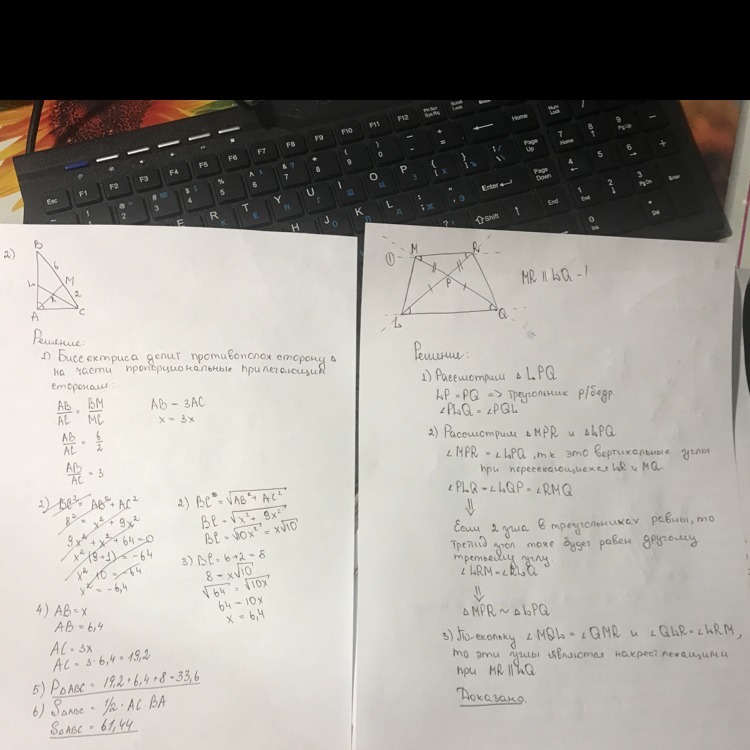 Esc
F1
F2
F3
F4
F5
F6
F7
F8
F9
F10
F11
F12
Prt Scr
Sys Rq
Scroll
Lock
Num
Lock
Home
Page
Up
Page
Down
Enter
Shift
End
2)
B
6
M
2
A
C
Решение:
1) Биссектриса делит противополож сторону Δ
на части пропорциональные прилегающим
сторонам:
AB/AC = BM/MC
AB - 3AC
x = 3x
AB/AC = 6/2
AB/AC = 3
2) BC² = AB² + AC²
8² = x² + 9x²
9x² + x² + 64 = 0
x² (9+1) = -64
x² 10 = -64
x² = -6,4
2) BC = √AB² + AC²
BC = √x² + 9x²
BC = √10x² = x√10
3) BC = 6+2 = 8
8 - x√10
√64 = √10x
64 - 10x
x = 6,4
4) AB = x
AB = 6,4
AC = 3x
AC = 3·6,4 = 19,2
5) PΔABC = 19,2 + 6,4 + 8 = 33,6
6) SΔABC = 1/2 · AC BA
SΔABC = 61,44
1
M
R
P
L
Q
MR || LQ - ?
Решение:
1) Рассмотрим Δ LPQ
LP = PQ => треугольник р/бедр.
∠PLQ = ∠PQL
2) Рассмотрим ΔMPR и ΔLPQ
∠MPR = ∠LPQ, т.к это вертикальные углы
при пересекающихся LR и MQ
∠PLQ = ∠LQP = ∠RMQ
⇓
Если 2 угла в треугольниках равны, то
третий угол тоже будет равен другому
третьему углу.
∠LRM = ∠RLQ
⇓
ΔMPR ~ ΔLPQ
3) Поскольку ∠MQL = ∠QMR и ∠QLR = ∠LRM,
то эти углы являются накрест лежащими
при MR || LQ
Доказано.